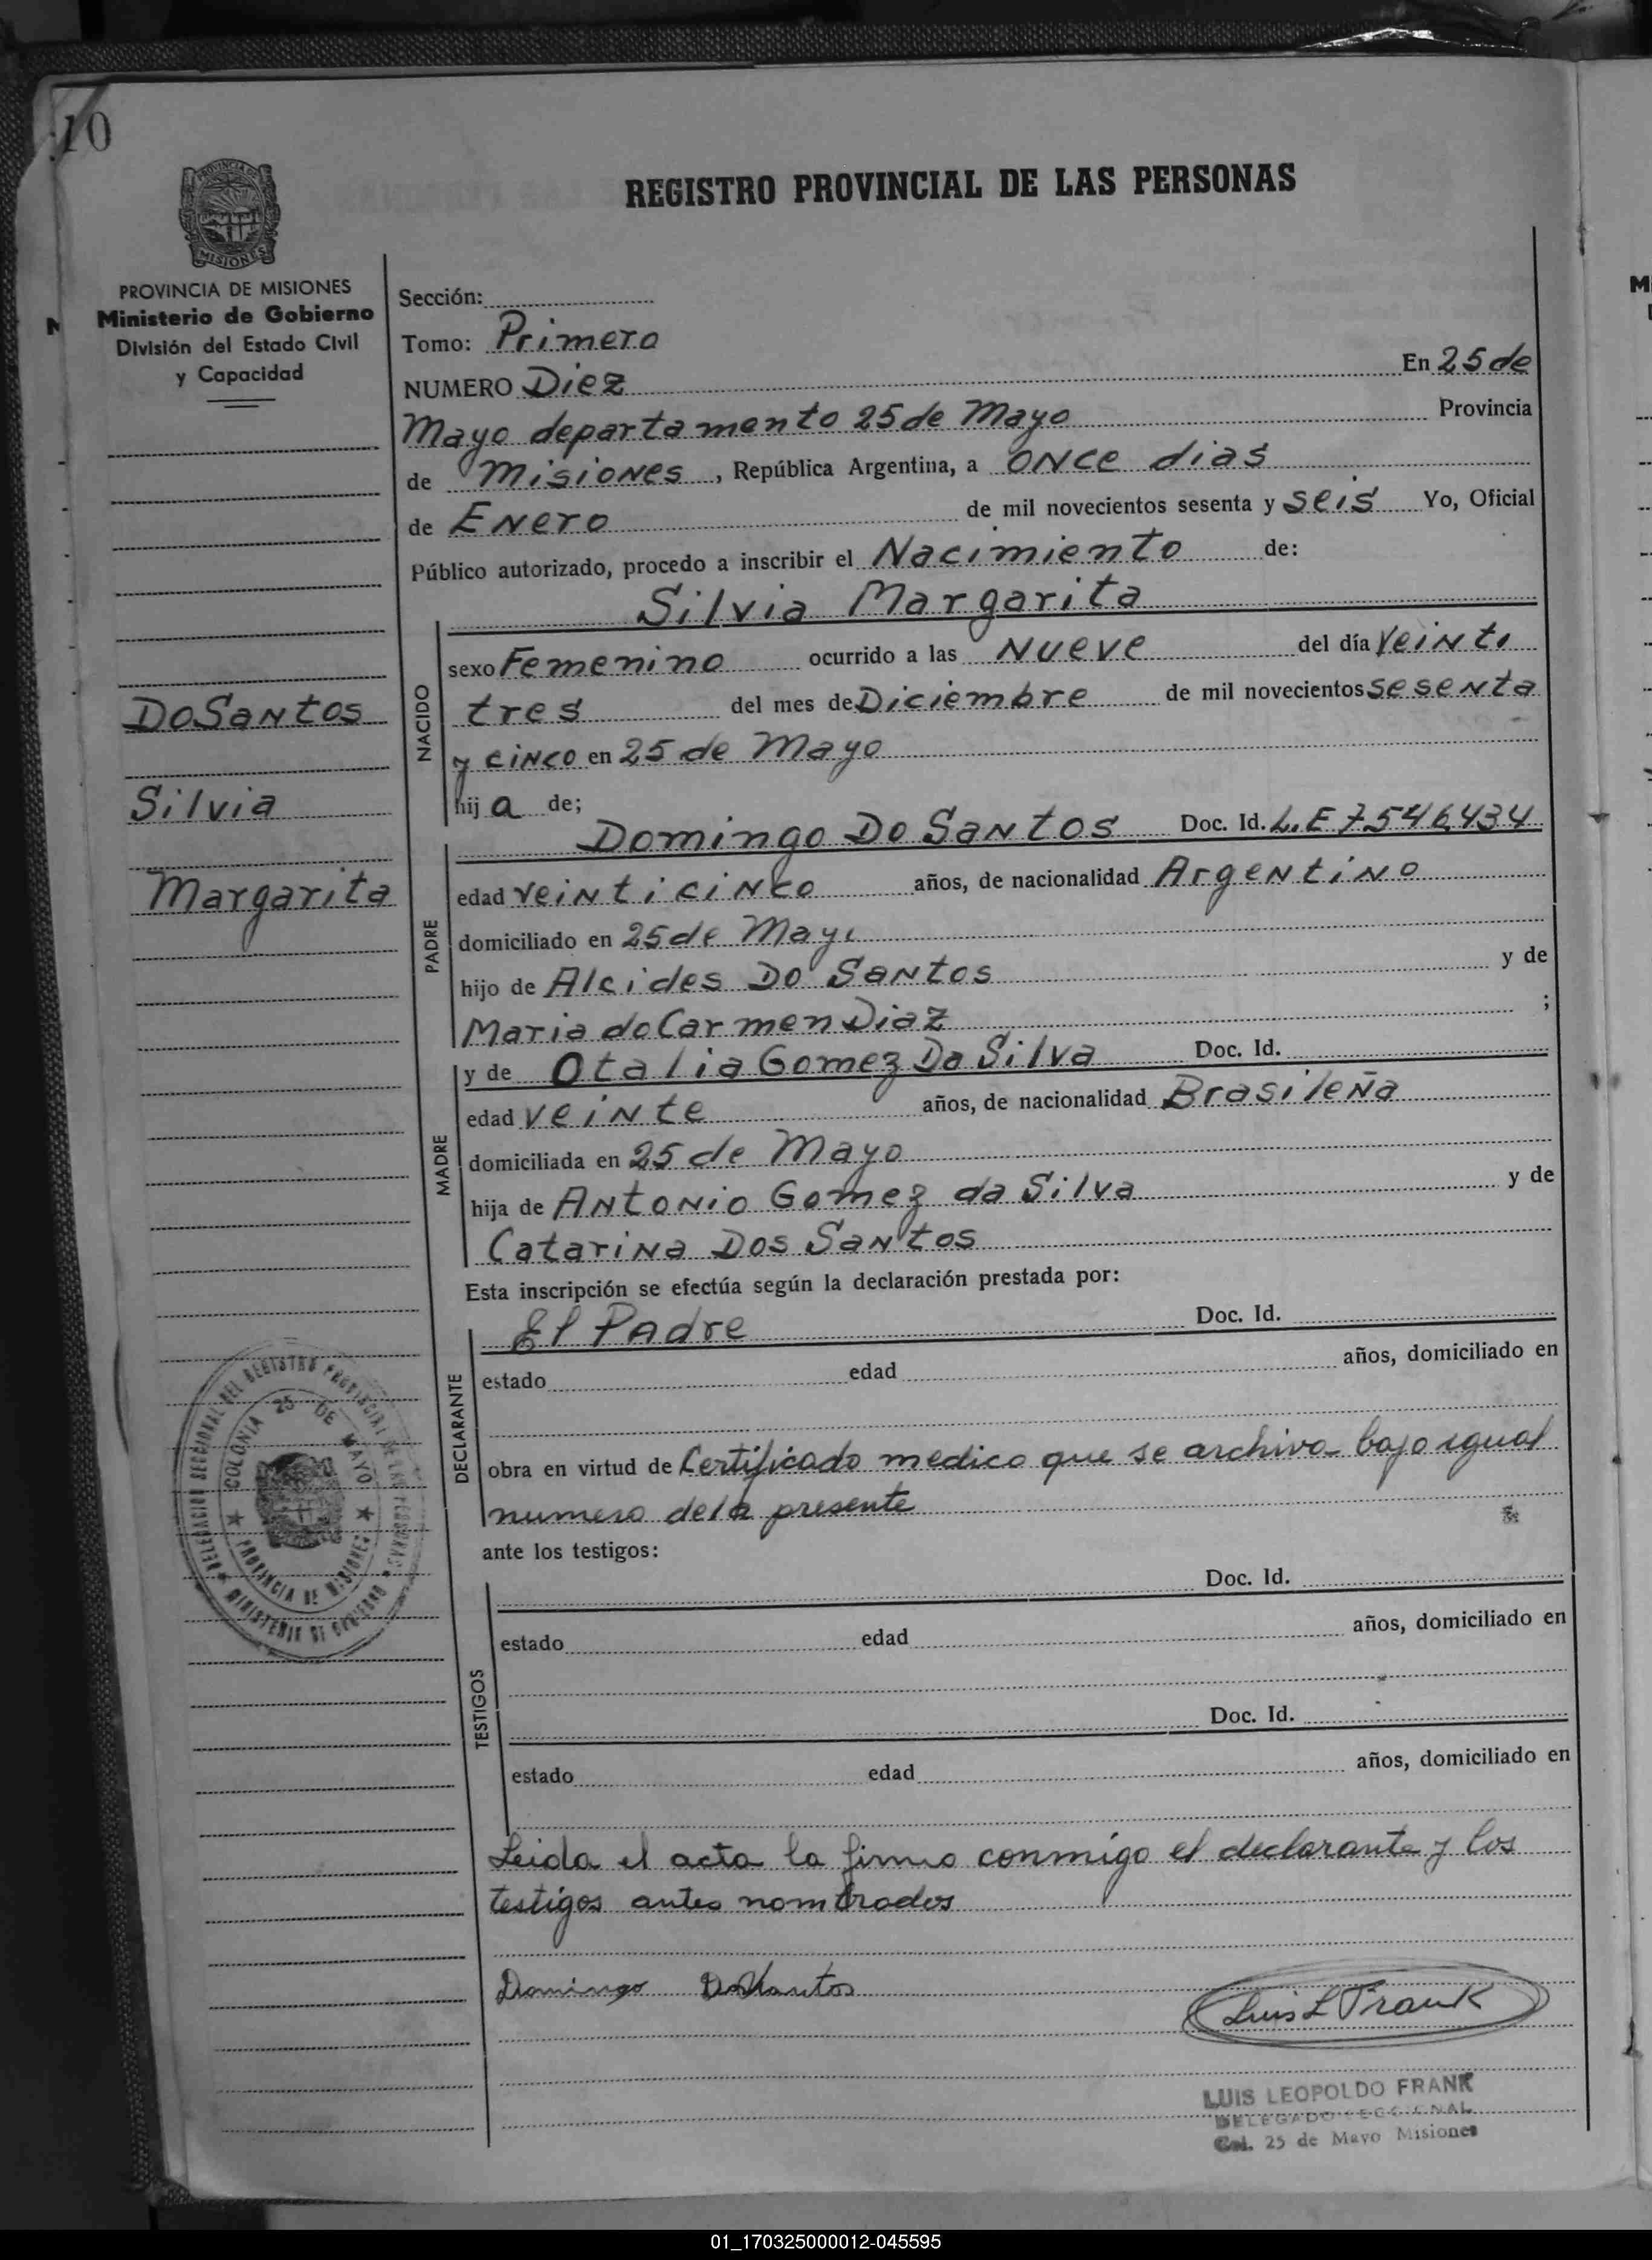 10
REGISTRO PROVINCIAL DE LAS PERSONAS
PROVINCIA DE MISIONES
Ministerio de Gobierno
División del Estado Civil
y Capacidad
DoSantos
Silvia
Margarita
Sección:
Tomo: Primero
NUMERO Diez En 25 de
Mayo departamento 25 de Mayo Provincia
de Misiones, República Argentina, a once dias
de Enero de mil novecientos sesenta y seis Yo, Oficial
Público autorizado, procedo a inscribir el Nacimiento de:
Silvia Margarita
NACIDO
sexo Femenino ocurrido a las Nueve del día veinti
tres del mes de Diciembre de mil novecientos sesenta
y cinco en 25 de Mayo
hij a de;
PADRE
Domingo Do Santos Doc. Id. L.E 7.546.434
edad veinticinco años, de nacionalidad Argentino
domiciliado en 25 de Mayo
hijo de Alcides Do Santos y de
Maria do Carmen Diaz ;
MADRE
y de Otalia Gomez Da Silva Doc. Id.
edad veinte años, de nacionalidad Brasileña
domiciliada en 25 de Mayo
hija de Antonio Gomez da Silva y de
Catarina Dos Santos
Esta inscripción se efectúa según la declaración prestada por:
DECLARANTE
El Padre Doc. Id.
estado edad años, domiciliado en
obra en virtud de Certificado medico que se archiva bajo igual
numero de la presente
ante los testigos:
TESTIGOS
Doc. Id.
estado edad años, domiciliado en
Doc. Id.
estado edad años, domiciliado en
Leida el acta la firma conmigo el declarante y los
testigos antes nombrados
Domingo DoSantos
Luis L Frank
LUIS LEOPOLDO FRANK
DELEGADO SECCIONAL
Col. 25 de Mayo Misiones
DELEGACION SECCIONAL DEL REGISTRO PROVINCIAL DE LAS PERSONAS
MINISTERIO DE GOBIERNO
COLONIA 25 DE MAYO
PROVINCIA DE MISIONES
01_170325000012-045595